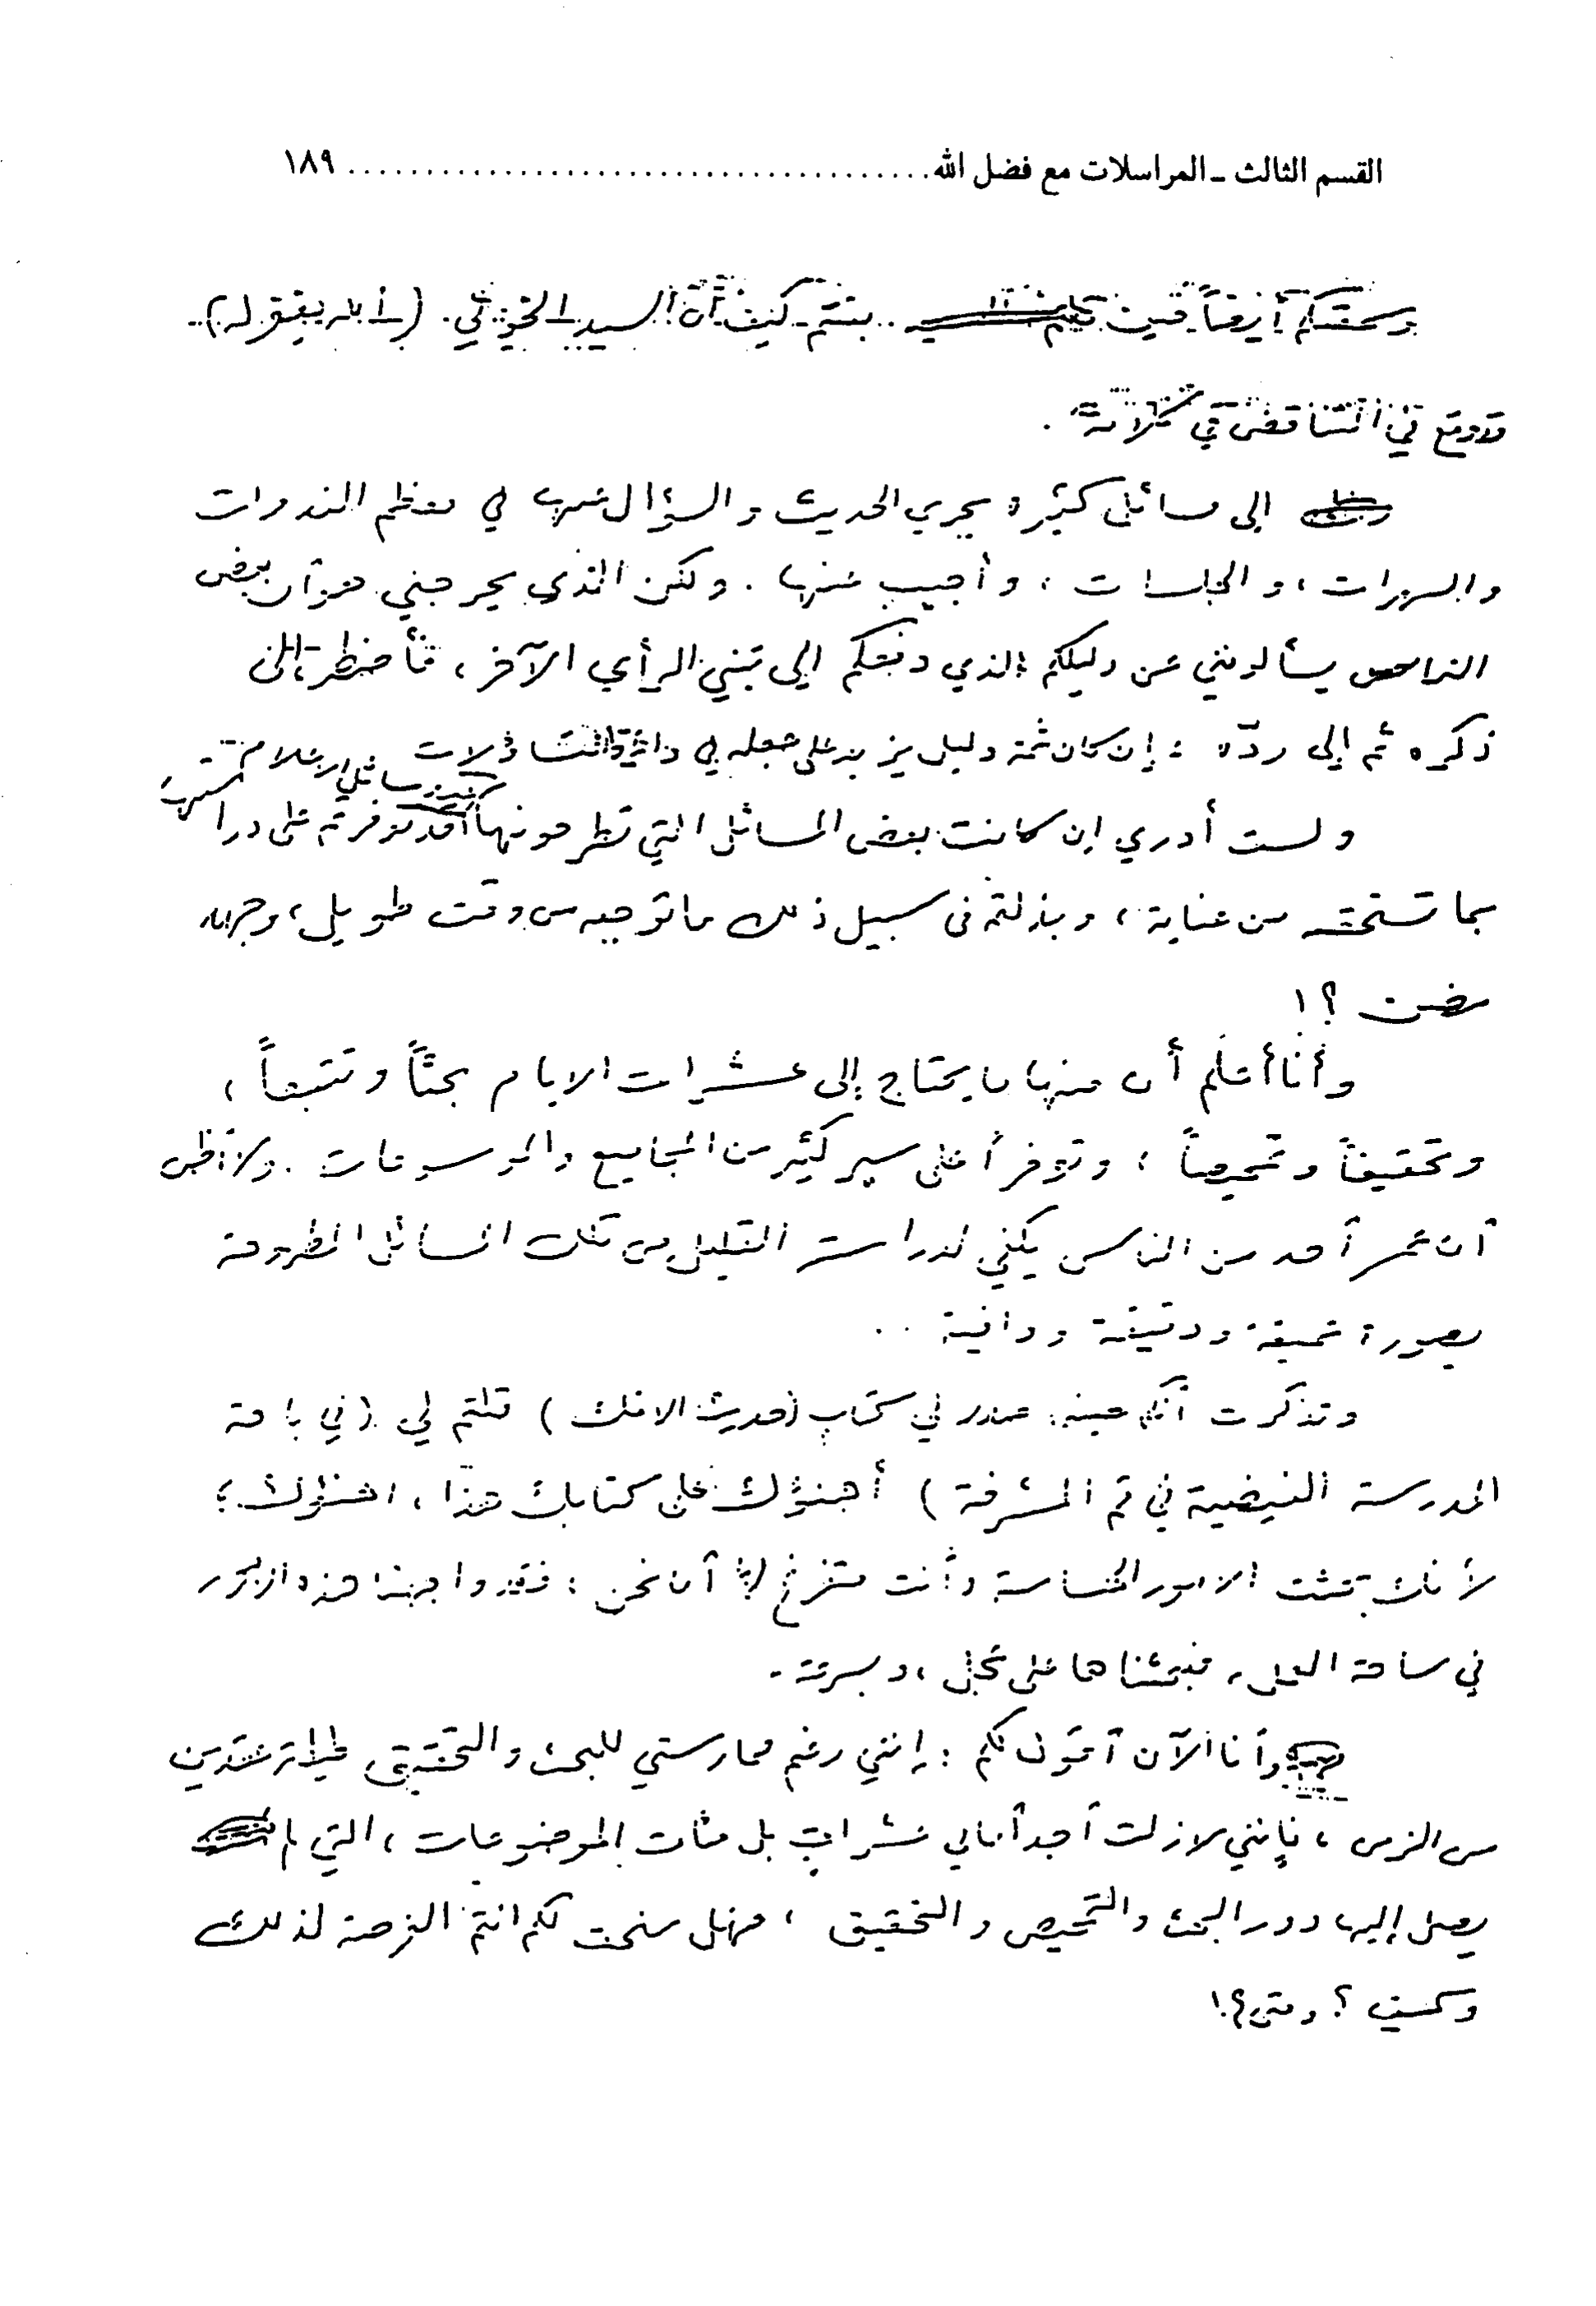 القسم الثالث ـ المراسلات مع فضل الله ........................................ ١٨٩
أيضاً حين بينتم كيف أن السيد الخوئي. (
قد وقع في التناقض في كلامه.
إلى مسائل كثيرة يجري الحديث والسؤال عنها في معظم الندوات
والسهرات، والجلسات، وأجيب عنها. ولكن الذي يحرجني هو أن بعض
الناس يسألونني عن دليلكم الذي دفعكم إلى تبني الرأي الآخر، فأضطر إلى
ذكره ثم إلى ردّه: إن كان ثمة دليل يزيد على جعله في دائرة التساؤلات
ولست أدري إن كانت بعض المسائل التي تطرحونها قد توفرتم على دراستها
بما تستحقه من عناية، وبذلتم في سبيل ذلك ما توجبه من وقت طويل، وجهد
مضن؟!
وأنا أعلم أن منها ما يحتاج إلى عشرات الايام بحثاً وتتبعاً،
وتحقيقاً وتمحيصاً؛ وتوفراً على سير كثير من المجاميع والموسوعات. ولا أظن
أن عمر أحد من الناس يكفي لدراسة القليل من تلك المسائل المطروحة
بصورة عميقة ودقيقة ووافية..
وتذكرت أنكم حينما صدر لي كتاب (حديث الافك) قلتم لي (في باحة
المدرسة الفيضية في قم المشرفة) أهنؤك على كتابك هذا، اهنؤك؛
لأنك بحثت الامور الحساسة وأنت متفرغ لها أما نحن: فقد واجهتنا هذه الامور
في ساحة العمل، فبحثناها على عجل، وبسرعة.
وأنا الآن أقول لكم: إنني رغم ممارستي للبحث والتحقيق طيلة عقدين
من الزمن، فإنني لا زلت أجد أمامي عشرات بل مئات الموضوعات، التي لم
يصل إليها دور البحث والتمحيص والتحقيق، فهل سنحت لكم انتم الفرصة لذلك
وكيف؟ ومتى؟!